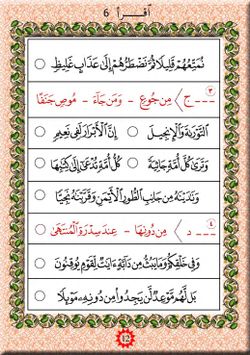 أقرأ 6
نُمَتِّعُهُمْ قَلِيلًا ثُمَّ نَضْطَرُّهُمْ إِلَىٰ عَذَابٍ غَلِيظٍ
٣ ـ ج > مِن جُوعٍ - وَمَن جَآءَ - مُوصٍ جَنَفًا
التَّوْرَىٰةَ وَالْإِنجِيلَ ○ إِنَّ الْأَبْرَارَ لَفِى نَعِيمٍ ○
وَتَرَىٰ كُلَّ أُمَّةٍ جَاثِيَةً ○ كُلُّ أُمَّةٍ تُدْعَىٰ إِلَىٰ كِتَٰبِهَا ○
وَنَٰدَيْنَٰهُ مِن جَانِبِ الطُّورِ الْأَيْمَنِ وَقَرَّبْنَٰهُ نَجِيًّا ○
٤ ـ د > مِن دُونِهَا - عِندَ سِدْرَةِ الْمُنتَهَىٰ
وَفِى خَلْقِكُمْ وَمَا يَبُثُّ مِن دَآبَّةٍ ءَايَٰتٌ لِّقَوْمٍ يُوقِنُونَ ○
بَل لَّهُم مَّوْعِدٌ لَّن يَجِدُوا۟ مِن دُونِهِۦ مَوْئِلًا ○
12